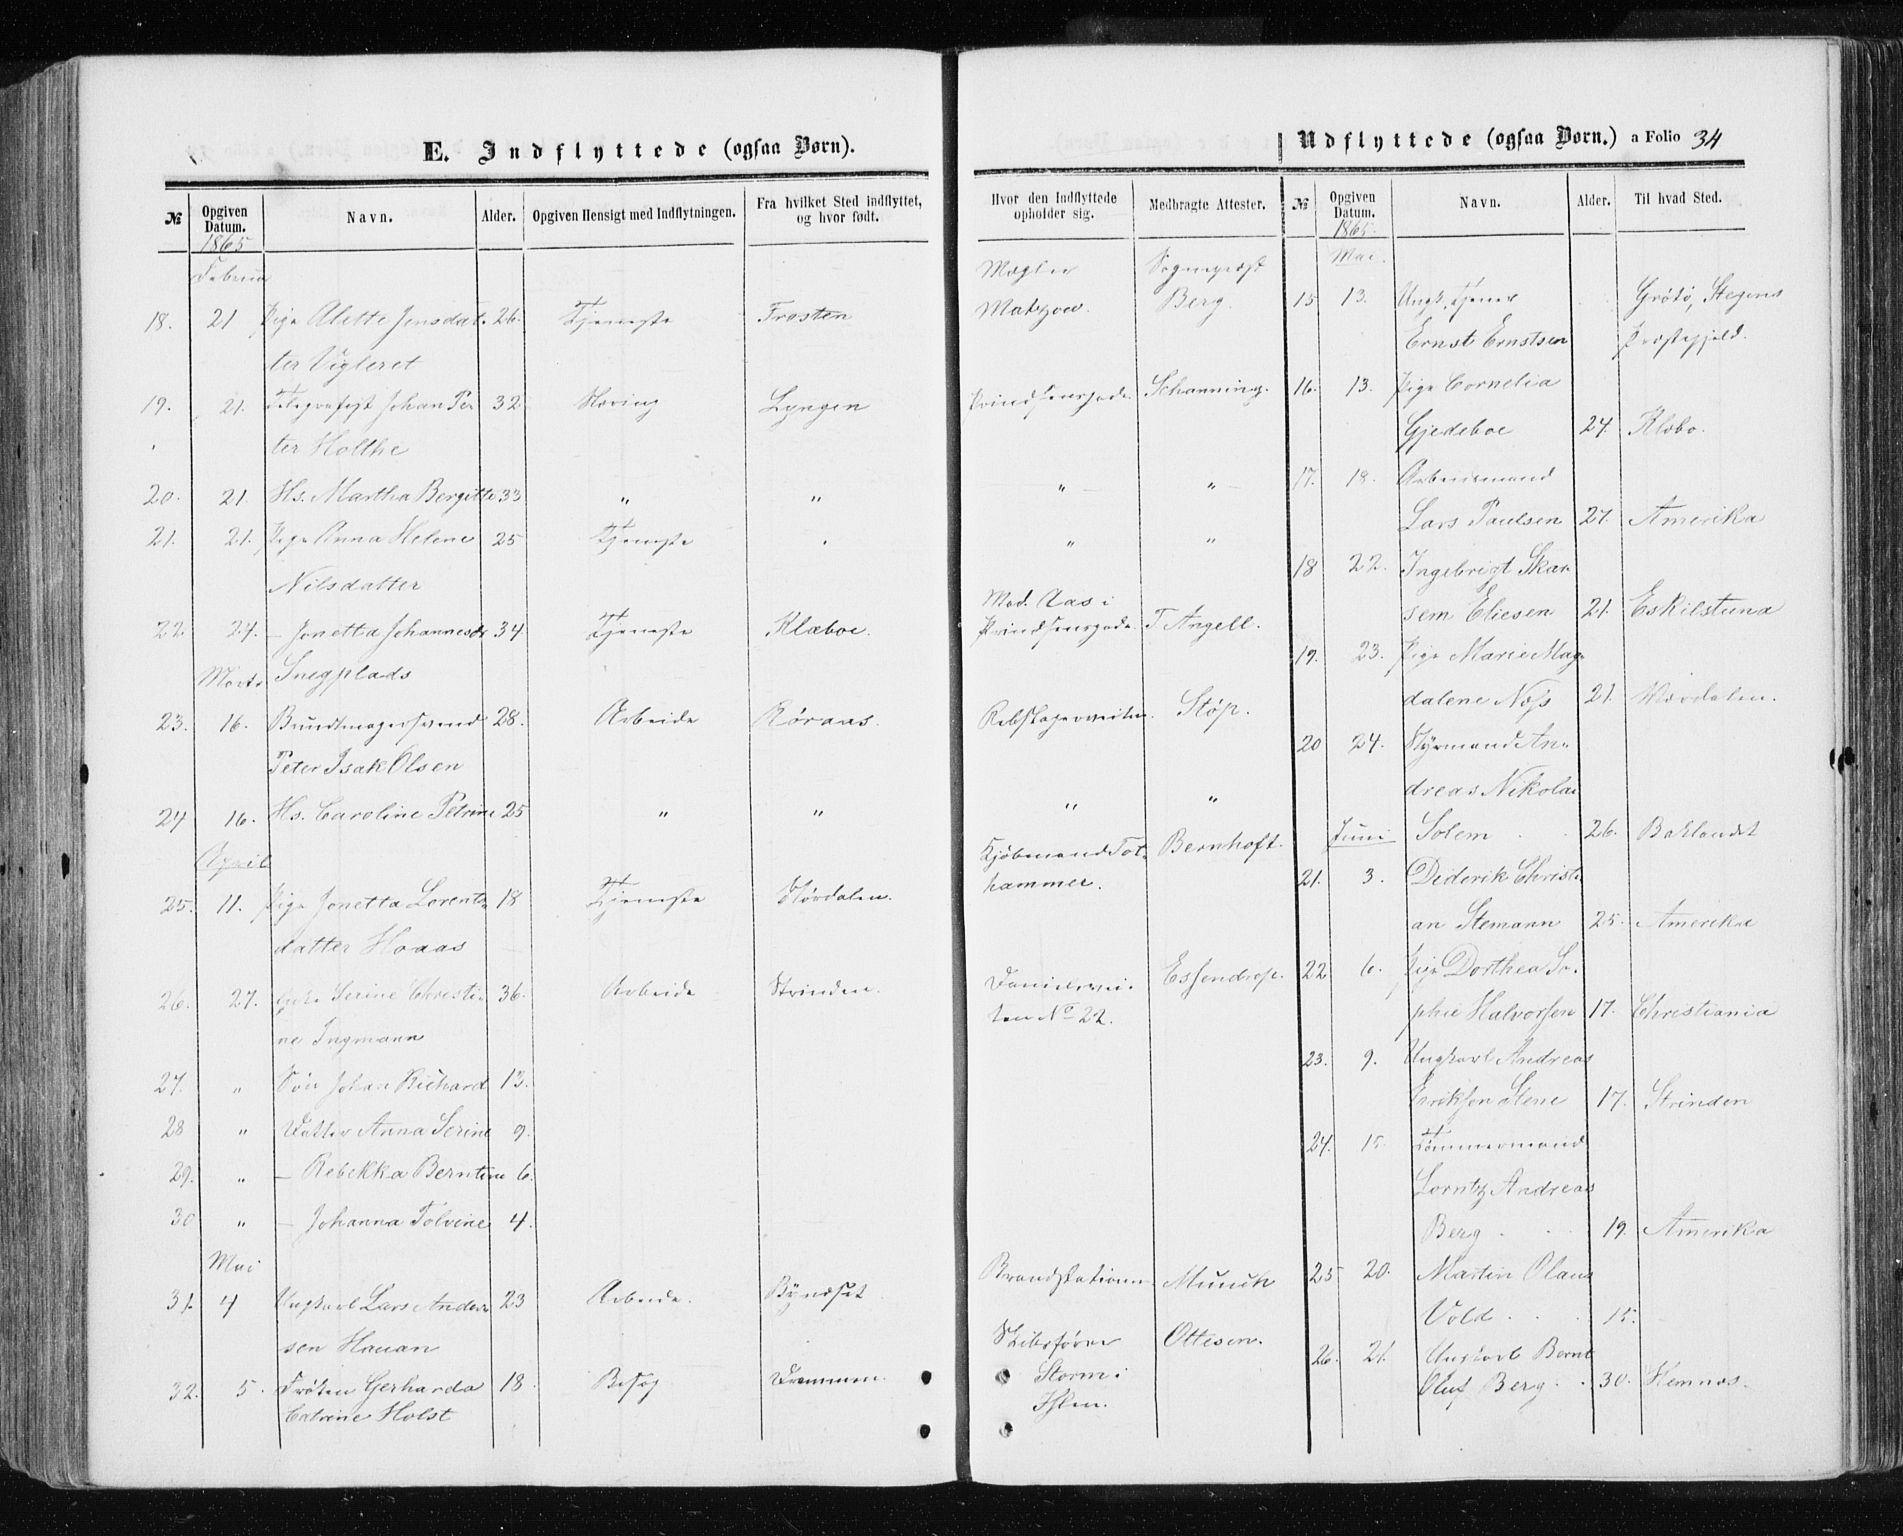 E. Indflyttede (ogsaa Børn).
№ Opgiven Datum. Navn. Alder. Opgiven Hensigt med Indflytningen. Fra hvilket Sted indflyttet, og hvor født.
1865
Februar
18. 21 Pige Alette Jensdat- 26. Tjeneste Frosten
ter Vigleret
19. 21. Telegrafist Johan Pe 32. Næring Lyngen
ter Holthe
20. 21. Hs. Martha Bergitte 33 " "
21. 21. Pige Anna Helene 25 Tjeneste "
Nilsdatter
22 24. – Jonetta Johannesdr 34 Tjeneste Klæboe.
Marts Snegplads
23. 16. Bundtmagersvend 28. Arbeide Røraas.
Peter Isak Olsen
24 16. Hs. Caroline Petrine 25 " "
April
25. 11. Pige Jonetta Lorents- 18 Tjeneste Størdalen.
datter Hoaas
26. 27. Serine Christi- 36. Arbeide Strinden.
ne Ingmann
27. " Søn Johan Richard 13.
28 " Datter Anna Serine 9.
29. " – Rebekka Berntine 6.
30 " – Johanna Tolvine 4.
Mai
31. 4 Ungkarl Lars Ander- 23 Arbeide. Bynæset
sen Hauan
32. 5. Frøken Gerharda 18. Besøg Drammen.
Catrine Holst
Hvor den Indflyttede opholder sig. Medbragte Attester.
Mægler Sogneprest
Matzow. Berg.
Prindsensgade. Schanning.
" "
" "
Mad. Aas i
Prindsensgade. T Angell.
Rebslagerveiten. Støp.
" "
Kjøbmand Tot- Bernhoft.
hammer.
Danielsvei- Essendrop.
ten No 22.
Brandstationen Munch
Skibsfører Ottesen.
Storm i
Ihlen.
Udflyttede (ogsaa Børn.) a Folio 34
№ Opgiven Datum. Navn. Alder. Til hvad Sted.
1865.
Mai.
15 13. Ungk. Tjener Grøtø, Stegens
Ernst Ernstsen Præstegjeld.
16. 13. Pige Cornelia
Gjedeboe 24. Klæbo.
17. 18. Arbeidsmand
Lars Paulsen 27. Amerika
18 22. Ingebrigt Skar-
sem Eliesen 21. Eskilstuna
19. 23. Pige Marie Mag-
dalene Næss 21. Værdalen.
20 24. Styrmand An-
dreas Nikolai
Juni Solem 26. Baklandet
21. 3. Diderik Christi-
an Stemann 25. Amerika
22. 6. Pige Dorthea So-
phie Halvorsen 17. Christiania
23. 9. Ungkarl Andreas
Eriksen Stene 17. Strinden
24. 15. Tømmermand
Lorntz Andreas
Berg 19. Amerika
25 20. Martin Olaus
Vold 15.
26. 21. Ungkarl Bernt
Oluf Berg 30. Hemnæs.